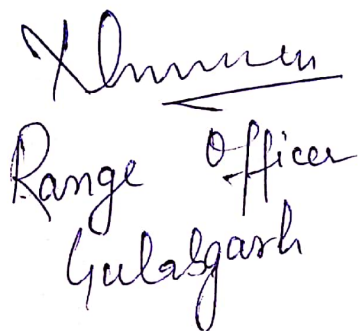 Range Officer
Gulabgarh